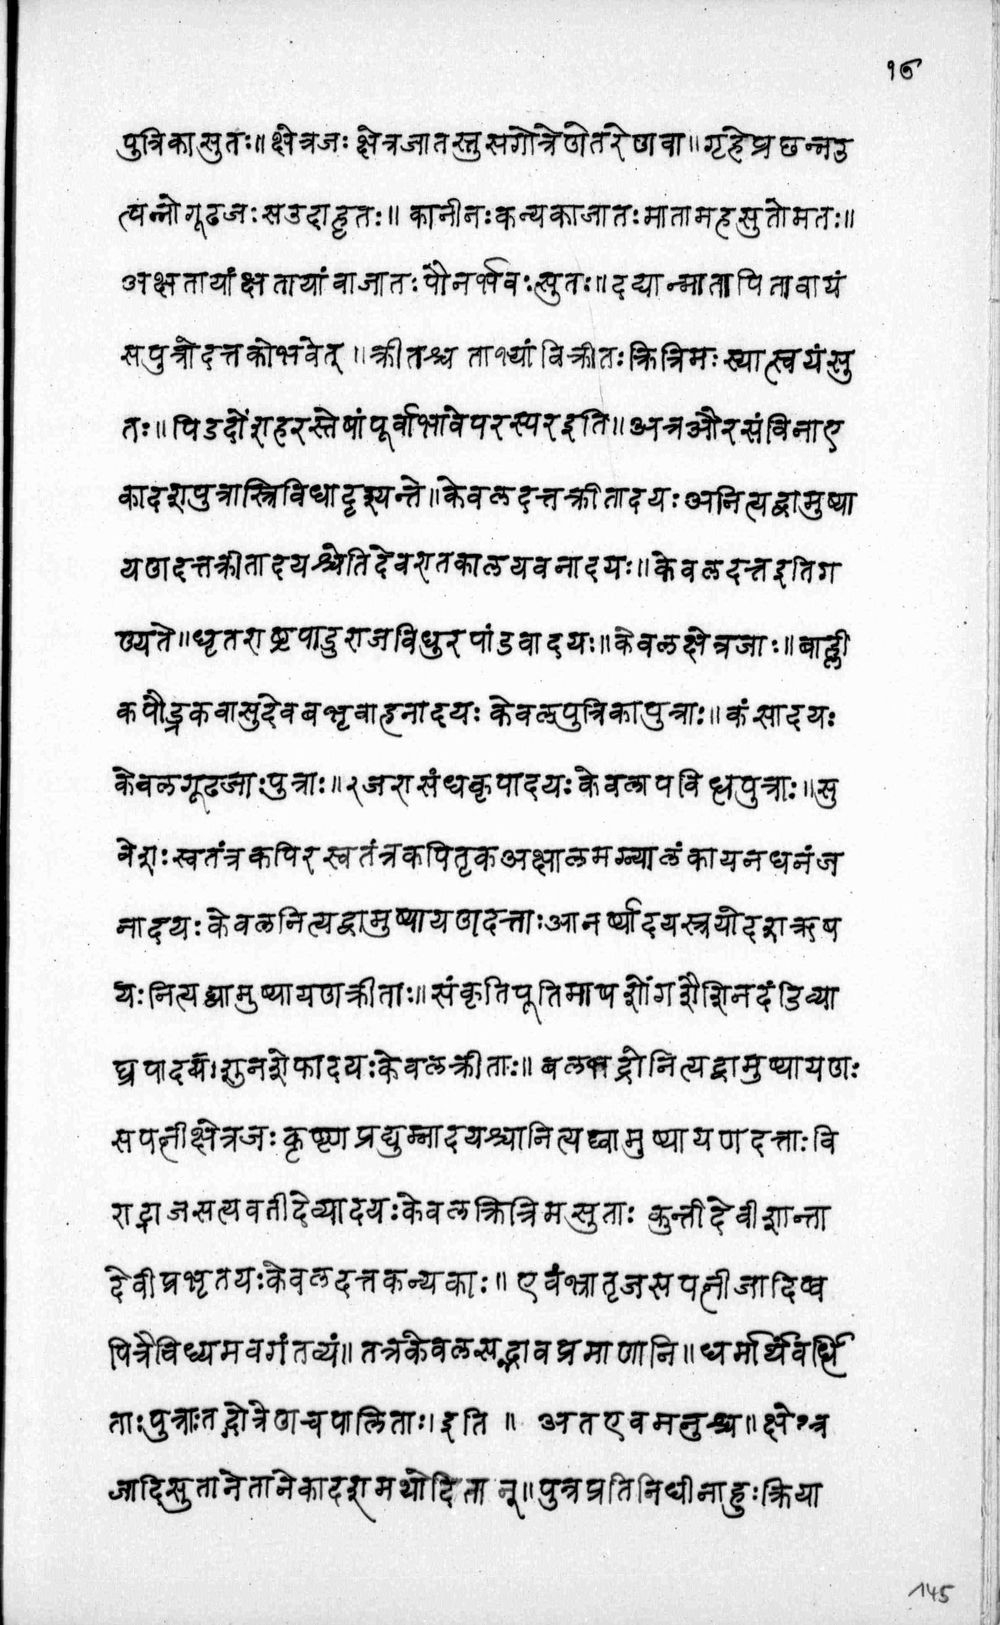 १७
पुत्रिकासुतः॥क्षेत्रजः क्षेत्रजातस्तु सगोत्रेणेतरेणवा॥गृहेप्रछन्नउ
त्पन्नोगूढजःसउदाहृतः॥ कानीनःकन्यकाजातःमातामहसुतोमतः॥
अक्षतायांक्षतायांवाजातःपौनर्भवःसुतः॥दद्यान्मातापितावायं
सपुत्रोदत्तकोभवेत्॥क्रीतश्च ताभ्यांविक्रीतःक्रित्रिमःस्यात्स्वयंसु
तः॥पिडदोंशहरस्तेषांपूर्वाभावेपरस्परइति॥अत्रऔरसंविनाए
कादशपुत्रास्त्रिविधादृश्यन्ते॥केवलदत्तक्रीतादयःअनित्यद्वामुष्या
यणदत्तक्रीतादयश्चेतिदेवरातकालयवनादयः॥केवलदत्तइतिग
ण्यते॥धृतराष्ट्रपाडुराजविधुरपांडवादयः॥केवलक्षेत्रजाः॥बाह्ली
कपौड्रकवासुदेवबभ्रृवाहनादयः केवलपुत्रिकापुत्राः॥कंसादयः
केवलगूढजाःपुत्राः॥२जरासंधकृपादयःकेवलापविध्धपुत्राः॥सु
वेशःस्वतंत्रकपिरस्वतंत्रकपितृकअक्षालमग्न्यालंकायनधनंज
नादयःकेवलनित्यद्वामुष्यायणदत्ताःआनर्ष्यादयस्त्रयोद्शऋष
यःनित्यद्यामुष्यायणक्रीताः॥संकृतिपूतिमाषशोंगशैशिनदंडिव्या
घ्रपादयः।शुनशेफादयःकेवलक्रीताः॥बलभद्रोनित्यद्वामुष्यायणः
सपत्नीक्षेत्रजःकृष्णप्रद्युम्नादयश्चानित्यद्वामुष्यायणदत्ताःवि
राट्राजसत्यवतीदेव्यादयःकेवलक्रित्रिमसुताः कुन्तीदेवीशान्ता
देवीप्रभृतयःकेवलदत्तकन्यकाः॥एवंभ्रातृजसपत्नीजादिष्व
पित्रैविध्यमवगंतव्यं॥तत्रकेवलसद्भावप्रमाणानि॥धर्मार्थंवर्धि
ताःपुत्राःतद्गोत्रेणचपालिताः।इति॥ अतएवमनुश्च॥क्षेत्र
जादिसुतानेतानेकादशमथोदितान्॥पुत्रप्रतिनिधीनाहुःक्रिया
145